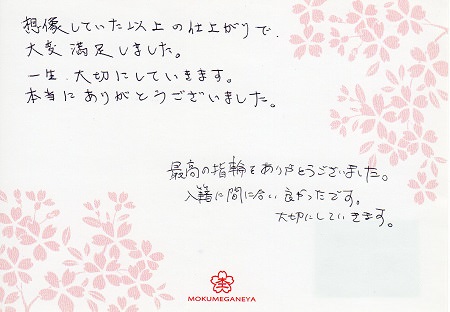 想像していた以上の仕上がりで、
大変満足しました。
一生、大切にしていきます。
本当にありがとうございました。
最高の指輪をありがとうございました。
入籍に間に合い良かったです。
大切にしていきます。
杢
MOKUMEGANEYA